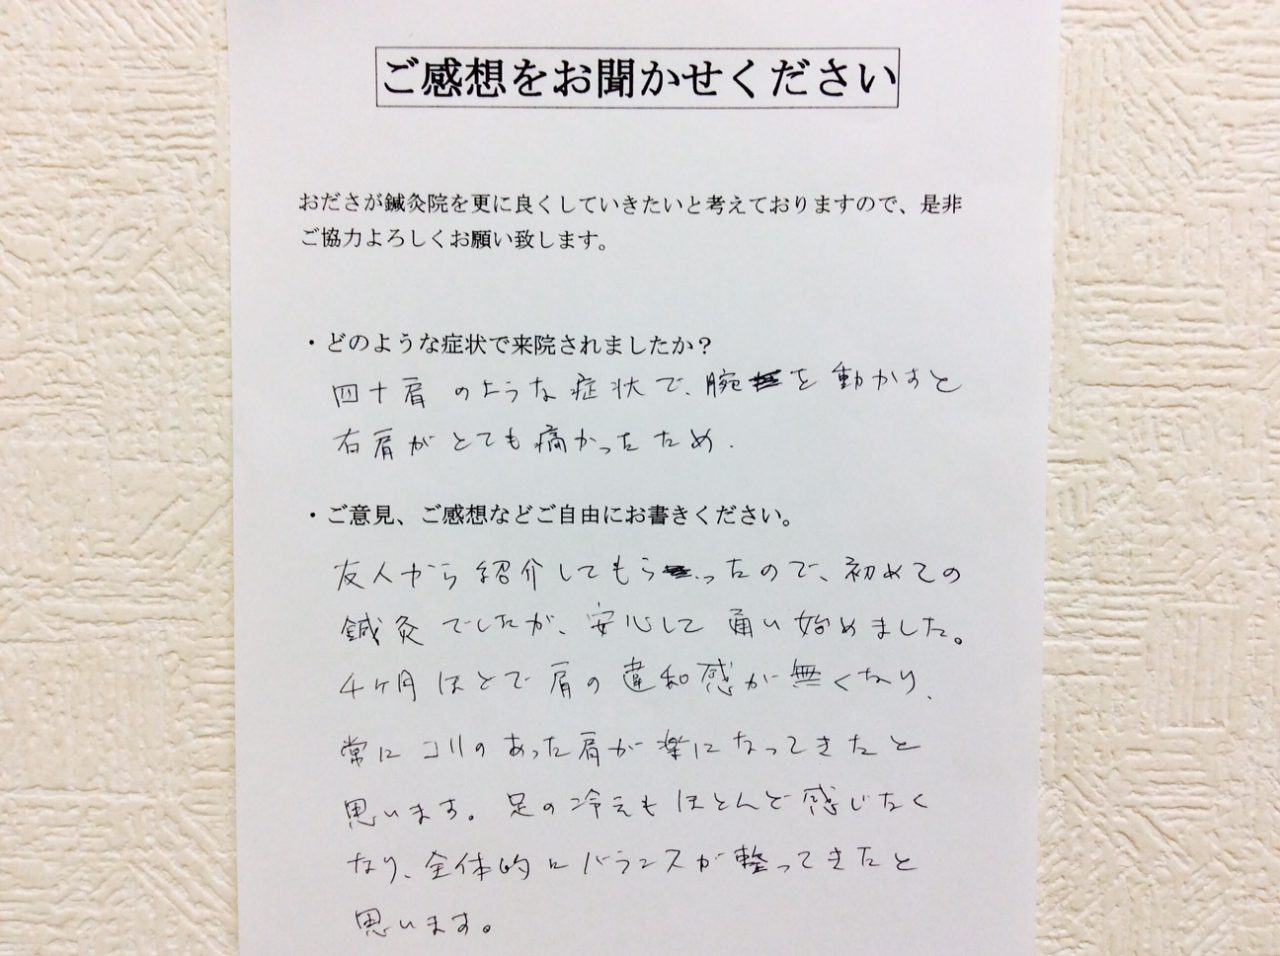 ご感想をお聞かせください
おださが鍼灸院を更に良くしていきたいと考えておりますので、是非
ご協力よろしくお願い致します。
・どのような症状で来院されましたか?
四十肩のような症状で、腕を動かすと
右肩がとても痛かったため.
・ご意見、ご感想などご自由にお書きください。
友人から紹介してもらったので、初めての
鍼灸でしたが、安心して通い始めました。
4ヶ月ほどで肩の違和感が無くなり、
常にコリのあった肩が楽になってきたと
思います。足の冷えもほとんど感じなく
なり、全体的にバランスが整ってきたと
思います。